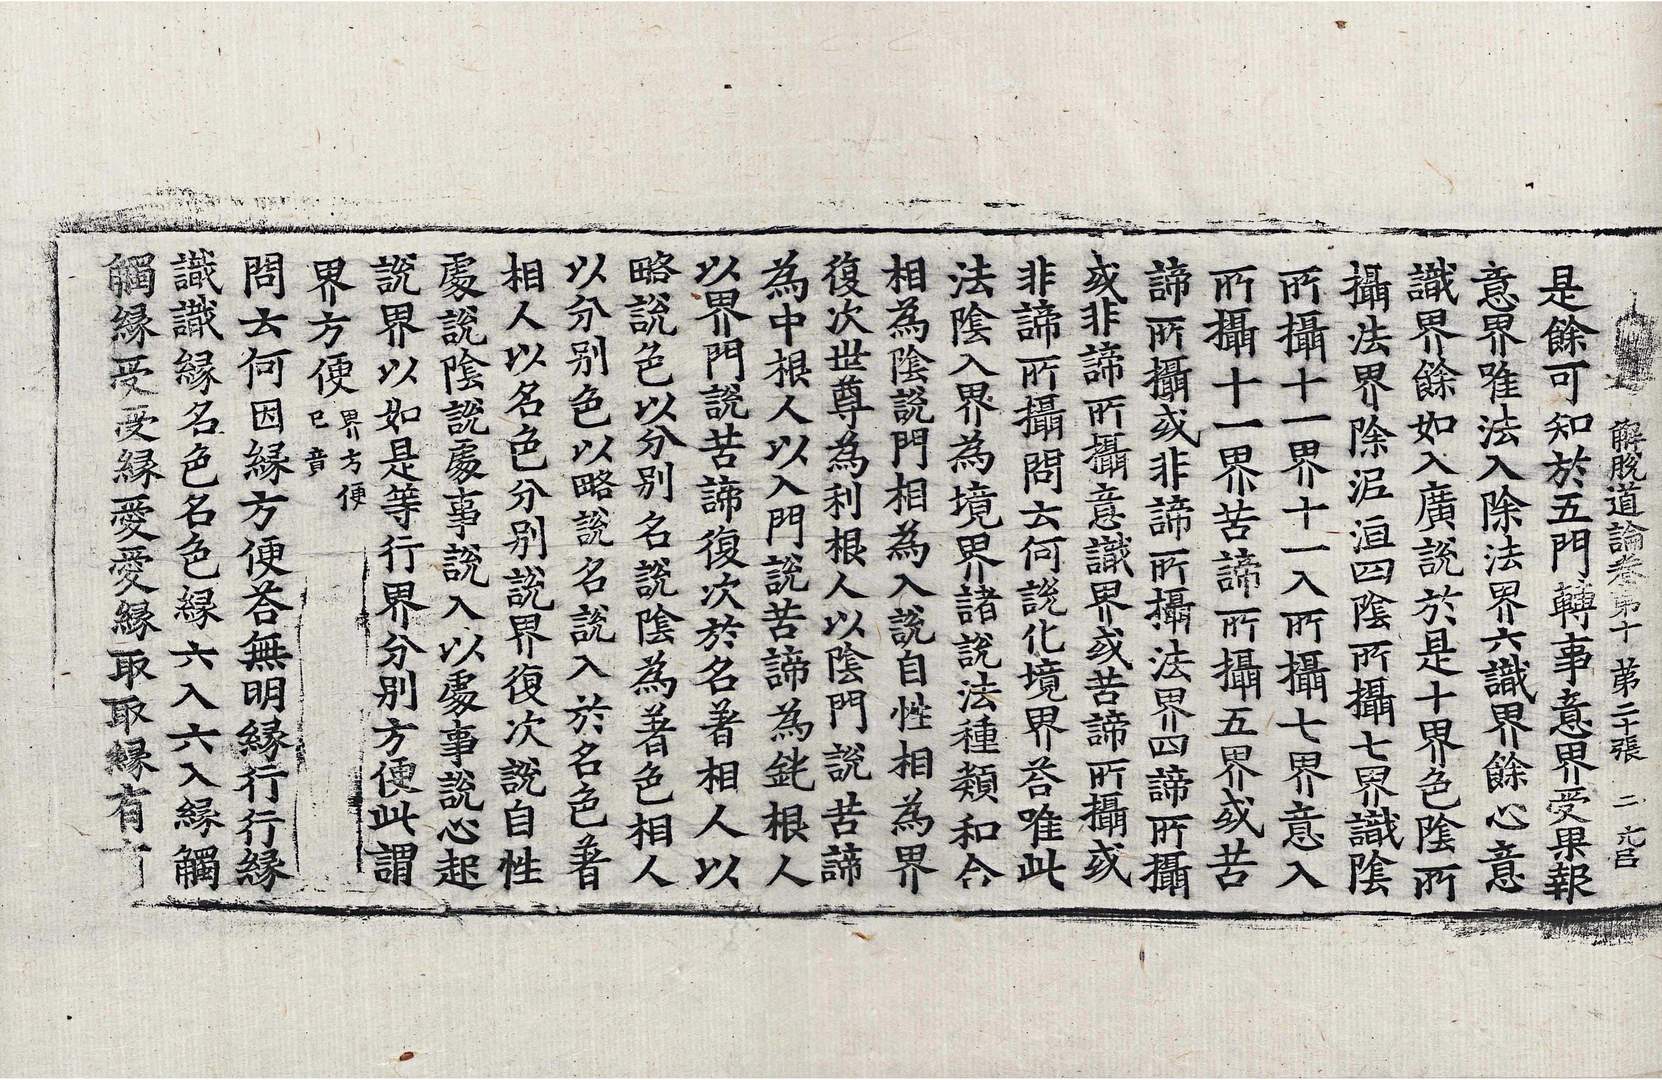 解脫道論卷第十　第二十張　二
是餘可知於五門轉事意界受果報
意界唯法入除法界六識界餘心意
識界餘如入廣說於是十界色陰所
攝法界除泥洹四陰所攝七界識陰
所攝十一界十一入所攝七界意入
所攝十一界苦諦所攝五界或苦
諦所攝或非諦所攝法界四諦所攝
或非諦所攝意識界或苦諦所攝或
非諦所攝問云何說化境界荅唯此
法陰入界為境界諸說法種類和合
相為陰說門相為入說自性相為界
復次世尊為利根人以陰門說苦諦
為中根人以入門說苦諦為鈍根人
以界門說苦諦復次於名著相人以
略說色以分別名說陰為著色相人
以分別色以略說名說入於名色著
相人以名色分別說界復次說自性
處說陰說處事說入以處事說心起
說界以如是等行界分別方便此謂
界方便界方便已竟
問云何因緣方便荅無明緣行行緣
識識緣名色名色緣六入六入緣觸
觸緣受受緣愛愛緣取取緣有